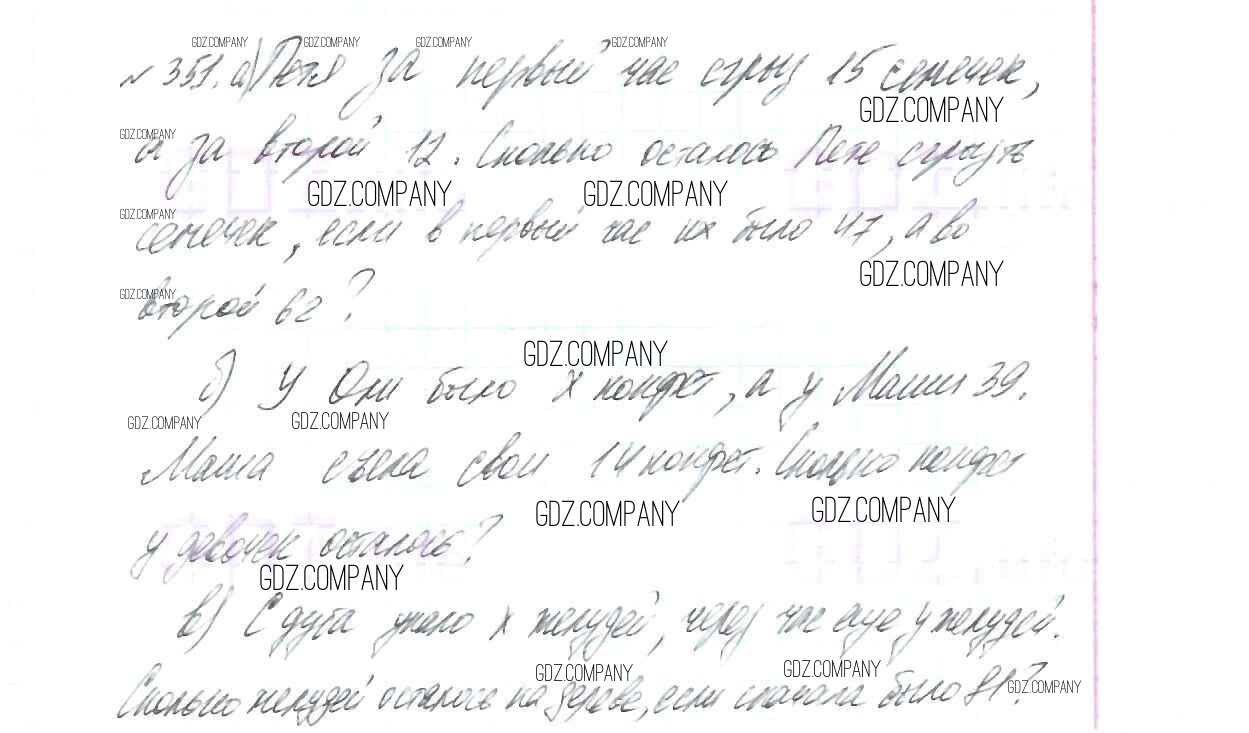 GDZ.COMPANY GDZ.COMPANY GDZ.COMPANY GDZ.COMPANY
№ 351. а) Петя за первый час сгрыз 15 семечек,
GDZ.COMPANY
GDZ.COMPANY
а за второй 12. Сколько осталось Пете сгрызть
GDZ.COMPANY GDZ.COMPANY
GDZ.COMPANY
семечек, если в первый час их было 47, а во
GDZ.COMPANY
GDZ.COMPANY
второй 62?
GDZ.COMPANY
б) У Оли было x конфет, а у Маши 39.
GDZ.COMPANY GDZ.COMPANY
Маша съела свои 14 конфет. Сколько конфет
GDZ.COMPANY GDZ.COMPANY
у девочек осталось?
GDZ.COMPANY
в) С дуба упало x желудей, через час еще y желудей.
GDZ.COMPANY GDZ.COMPANY
Сколько желудей осталось на дереве, если сначала было 81?
GDZ.COMPANY